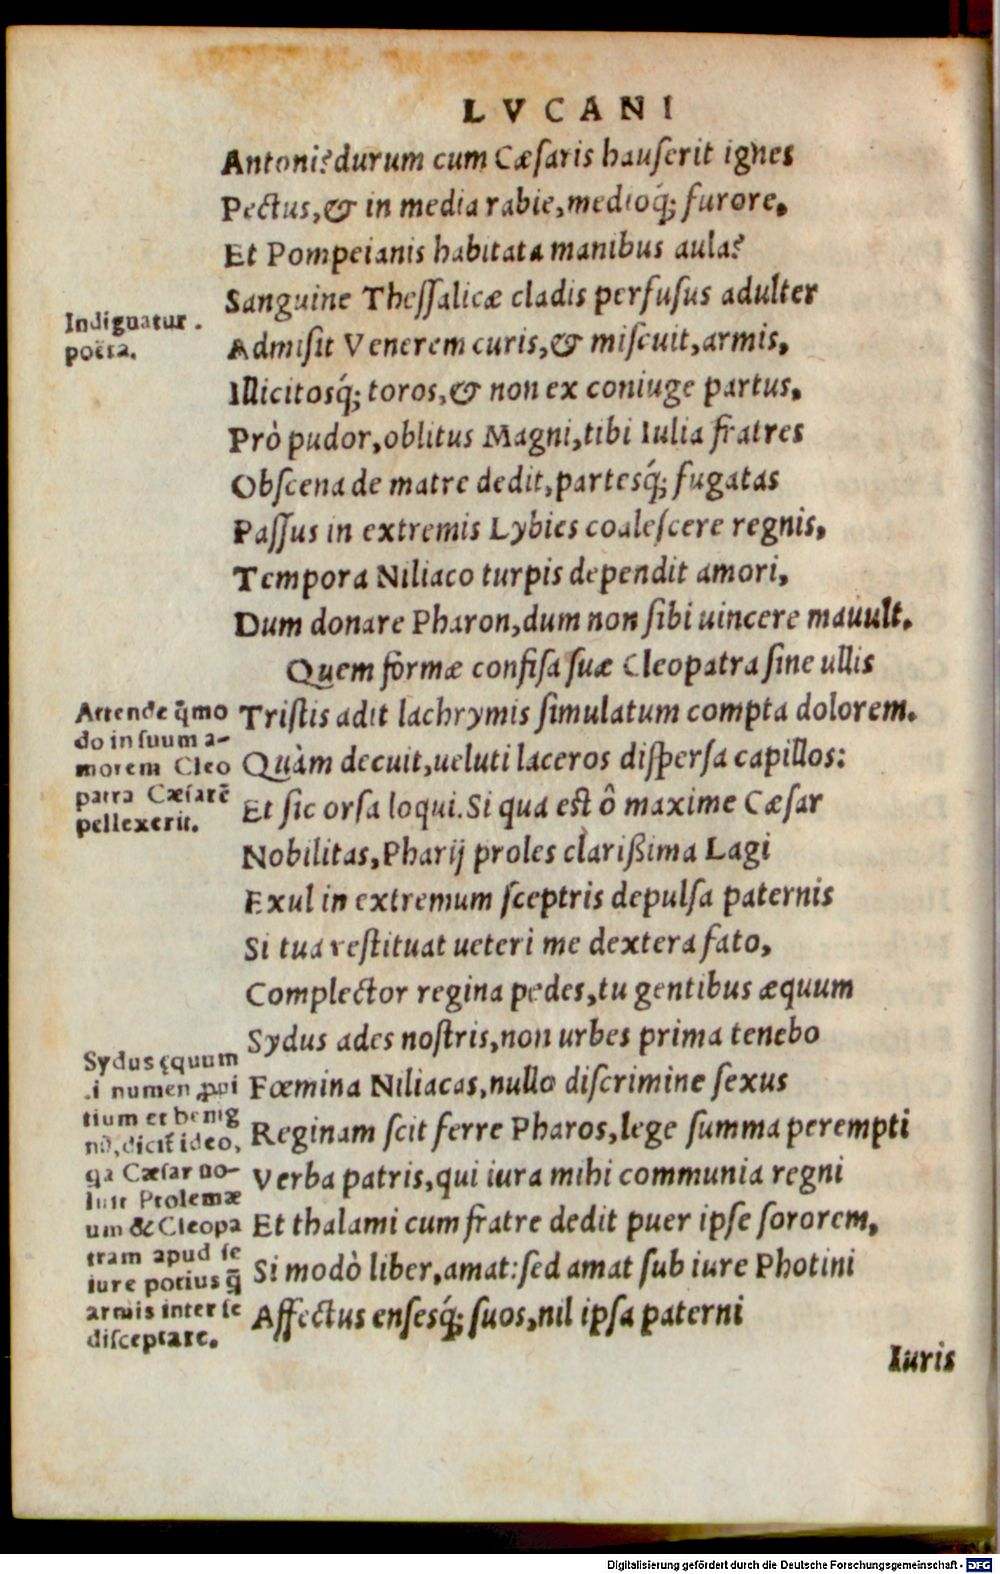 LVCANI
Antoni? durum cum Cæsaris hauserit ignes
Pectus, & in media rabie, medioq́; furore,
Et Pompeianis habitata manibus aula?
Sanguine Thessalicæ cladis perfusus adulter
Indignatur
poëta.
Admisit Venerem curis, & miscuit, armis,
Illicitosq́; toros, & non ex coniuge partus,
Prò pudor, oblitus Magni, tibi Iulia fratres
Obscena de matre dedit, partesq́; fugatas
Passus in extremis Lybies coalescere regnis,
Tempora Niliaco turpis dependit amori,
Dum donare Pharon, dum non sibi uincere mauult.
Quem formæ confisa suæ Cleopatra sine ullis
Tristis adit lachrymis simulatum compta dolorem.
Quàm decuit, ueluti laceros dispersa capillos:
Et sic orsa loqui. Si qua est ô maxime Cæsar
Attende q̃mo
do in suum a-
morem Cleo
patra Cæsarẽ
pellexerit.
Nobilitas, Pharij proles clarißima Lagi
Exul in extremum sceptris depulsa paternis
Si tua restituat ueteri me dextera fato,
Complector regina pedes, tu gentibus æquum
Sydus ades nostris, non urbes prima tenebo
Fœmina Niliacas, nullo discrimine sexus
Reginam scit ferre Pharos, lege summa perempti
Verba patris, qui iura mihi communia regni
Et thalami cum fratre dedit puer ipse sororem,
Si modò liber, amat: sed amat sub iure Photini
Affectus ensesq́; suos, nil ipsa paterni
Sydus ęquum
.i numen ꝓpi
tium et benig
nũ, dicit ideo,
qa Cæsar uo-
luit Ptolemæ
um & Cleopa
tram apud se
iure potius q̃
armis inter se
disceptare.
Iuris
Digitalisierung gefördert durch die Deutsche Forschungsgemeinschaft - DFG